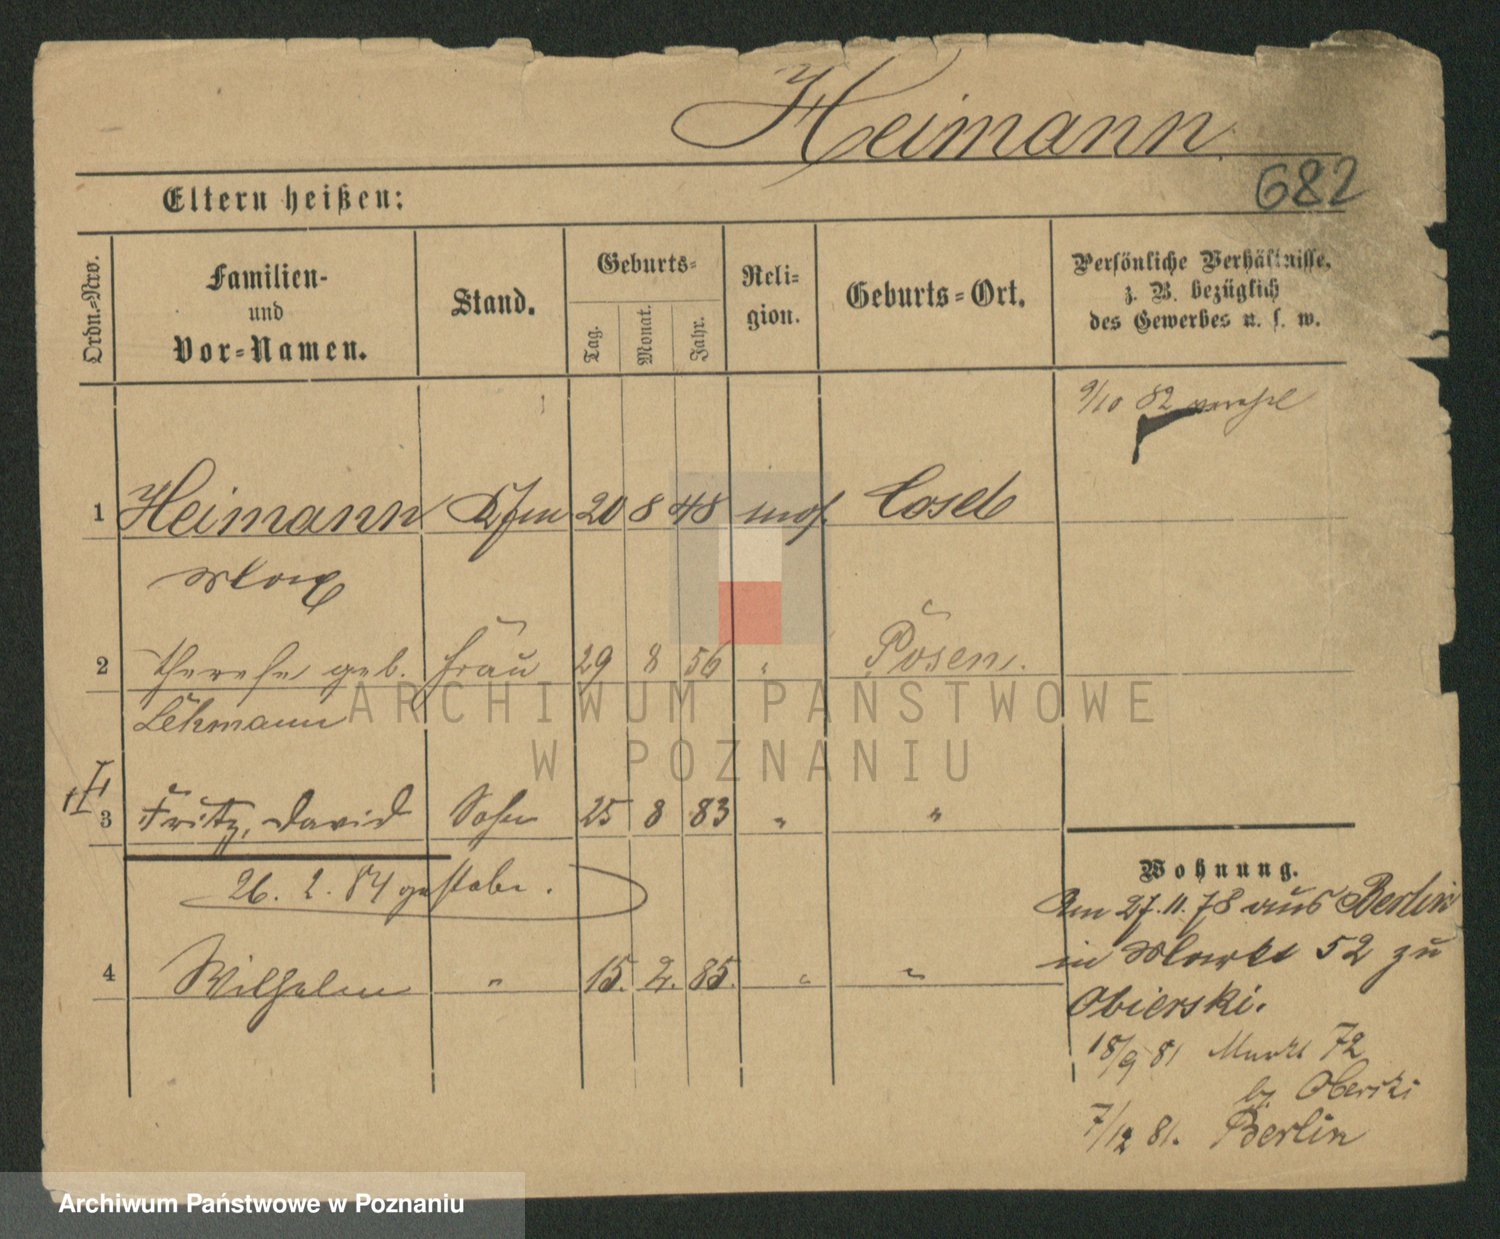 Heimann.
682
Eltern heißen:
Ordn.=Nro.
Familien-
und
Vor=Namen.
Stand.
Geburts=
Tag.
Monat.
Jahr.
Reli-
gion.
Geburts=Ort.
Persönliche Verhältnisse,
z. B. bezüglich
des Gewerbes u. s. w.
9/10 82
1 Heimann Kfm 20 8 48 mos. Cosel
Max
2 Therese geb. Frau 29 8 56 " Posen.
Lehmann
3 Fritz, David Sohn 25 8 83 " "
26. 2. 84 gestorben.
4 Wilhelm " 15. 2. 85. " "
Wohnung.
Am 27. 11. 78 aus Berlin
in Markt 52 zu
Obierski.
18/9 81 Markt 72
by. Obierski
7/12 81. Berlin
ARCHIWUM PAŃSTWOWE
W POZNANIU
Archiwum Państwowe w Poznaniu